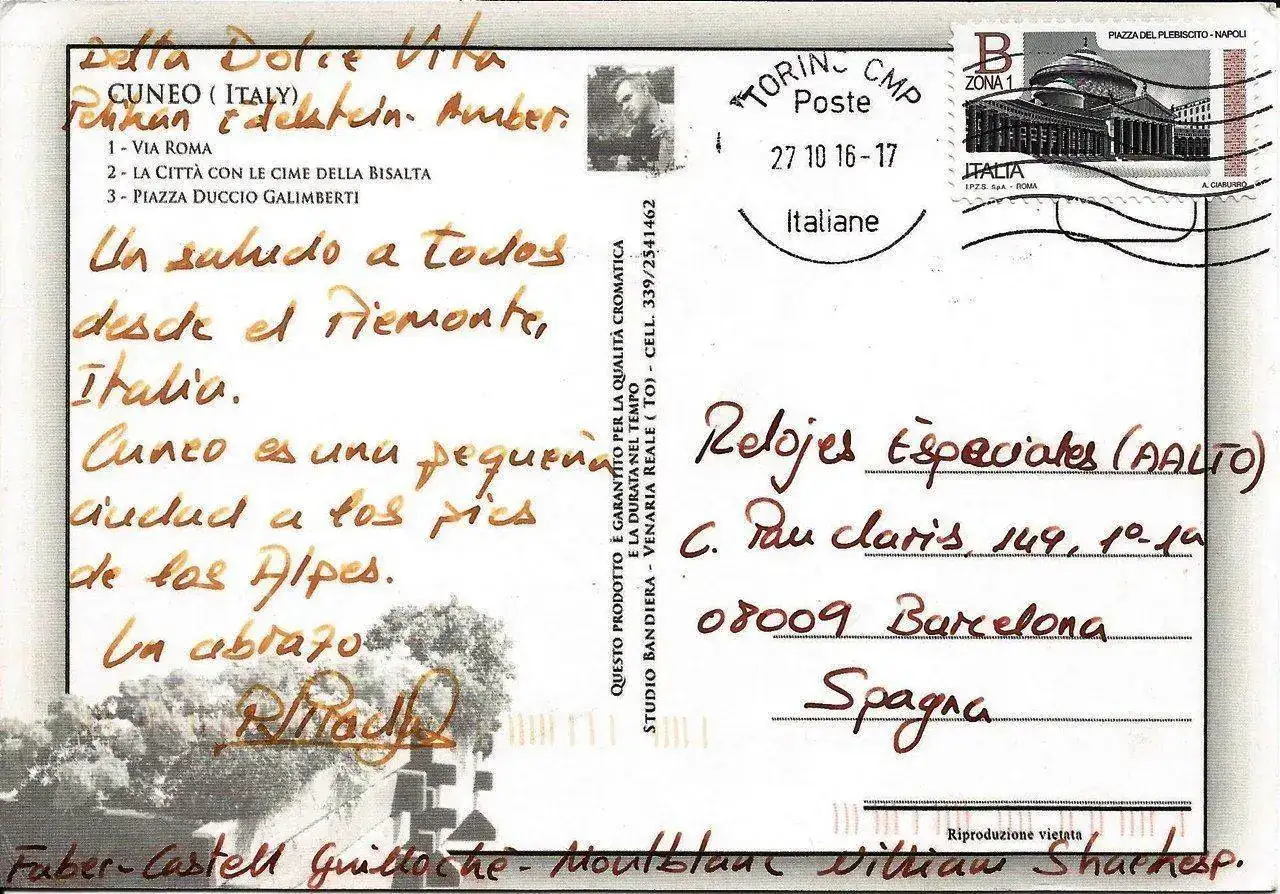 Delta Dolce Vita
CUNEO ( ITALY)
Pelikan Edelstein- Amber.
1 - VIA ROMA
2 - LA CITTÀ CON LE CIME DELLA BISALTA
3 - PIAZZA DUCCIO GALIMBERTI
Un saludo a todos
desde el Piemonte,
Italia.
Cuneo es una pequeña
ciudad a los pies
de los Alpes.
Un abrazo
QUESTO PRODOTTO È GARANTITO PER LA QUALITÀ CROMATICA
E LA DURATA NEL TEMPO
STUDIO BANDIERA - VENARIA REALE ( TO) - CELL. 339/2541462
TORINO CMP
Poste
27 10 16-17
Italiane
PIAZZA DEL PLEBISCITO - NAPOLI
B
ZONA 1
ITALIA
I.P.Z.S. S.p.A. - ROMA
A. CIABURRO
Relojes Especiales (AALTO)
C. Pau Claris, 149, 1º-1ª
08009 Barcelona
Spagna
Riproduzione vietata
Faber-Castell Guilloché - Montblanc William Shackesp.